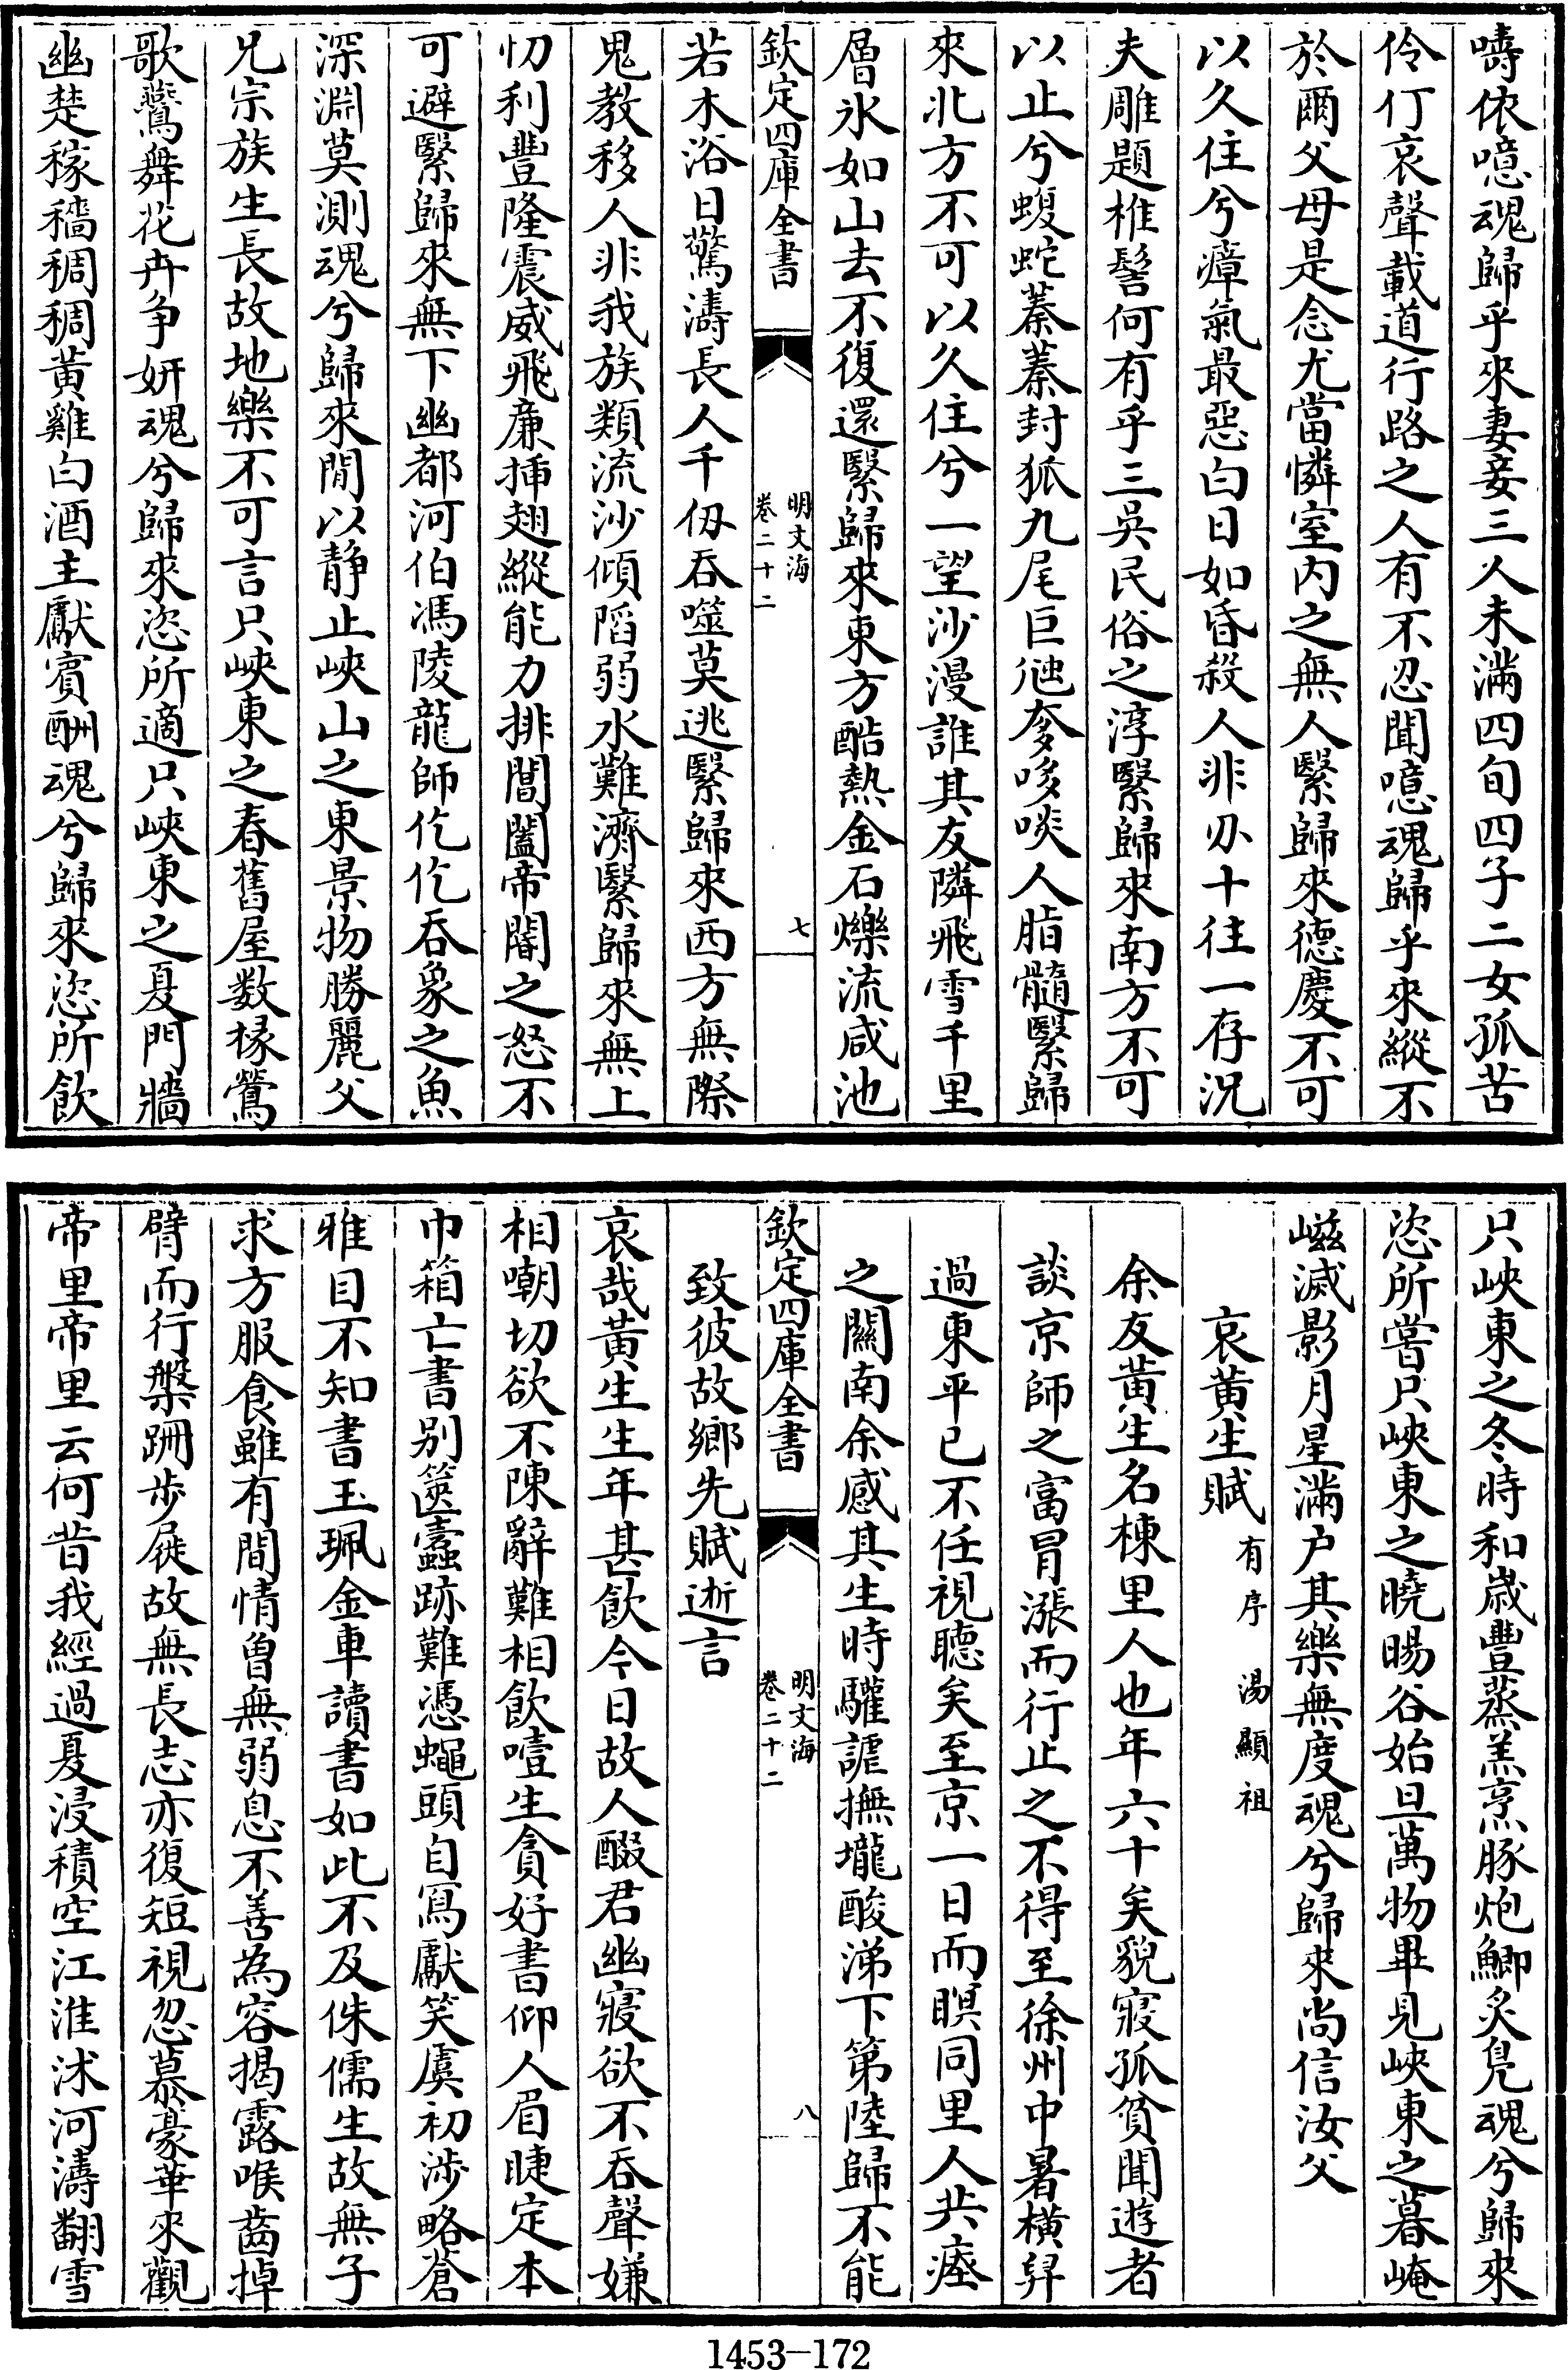 嚋依噫魂歸乎來妻妾三人未滿四旬四子二女孤苦
伶仃哀聲載道行路之人有不忍聞噫魂歸乎來縱不
於爾父母是念尤當憐室内之無人緊歸來德慶不可
以久住兮瘴氣最惡白日如昏殺人非刅十往一存況
夫雕題椎髻何有乎三吳民俗之淳緊歸來南方不可
以止兮蝮蛇蓁蓁封狐九尾巨虺奓哆啖人脂髓緊歸
來北方不可以久住兮一望沙漫誰其友隣飛雪千里
層氷如山去不復還緊歸來東方酷熱金石爍流咸池
欽定四庫全書
明文海
卷二十二
七
若木浴日驚濤長人千仭吞噬莫逃緊歸來西方無際
鬼教移人非我族類流沙傾陷弱水難濟緊歸來無上
忉利豐隆震威飛廉揷翅縱能力排閶闔帝閽之怒不
可避緊歸來無下幽都河伯馮陵龍師仡仡吞象之魚
深淵莫測魂兮歸來閒以静止峽山之東景物勝麗父
兄宗族生長故地樂不可言只峽東之春舊屋数椽鶯
歌鸞舞花卉争妍魂兮歸來恣所適只峽東之夏門牆
幽楚稼穡稠稠黄雞白酒主獻賓酬魂兮歸來恣所飲
只峽東之冬時和歲豐蒸羔烹豚炮鯽炙鳬魂兮歸來
恣所嘗只峽東之曉暘谷始旦萬物畢見峽東之暮崦
嵫滅影月星滿户其樂無度魂兮歸來尚信汝父
哀黄生賦 有序 湯顯祖
余友黄生名棟里人也年六十矣貌寢孤貧聞遊者
談京師之富冒漲而行止之不得至徐州中暑横舁
過東平已不任視聽矣至京一日而瞑同里人共瘞
之關南余感其生時驩謔撫壠酸涕下第陸歸不能
欽定四庫全書
明文海
卷二十二
八
致彼故鄉先賦逝言
哀哉黄生生年甚飲今日故人醊君幽寢欲不吞聲嫌
相嘲切欲不陳辭難相飲噎生貪好書仰人眉睫定本
巾箱亡書别篋蠹跡難憑蠅頭自寫獻笑虞初涉略蒼
雅目不知書玉珮金車讀書如此不及侏儒生故無子
求方服食雖有間情曾無弱息不善為容揭露喉齒掉
臂而行槃跚步屣故無長志亦復短視忽慕豪華來觀
帝里帝里云何昔我經過夏浸積空江淮沭河濤翻雪
1453-172